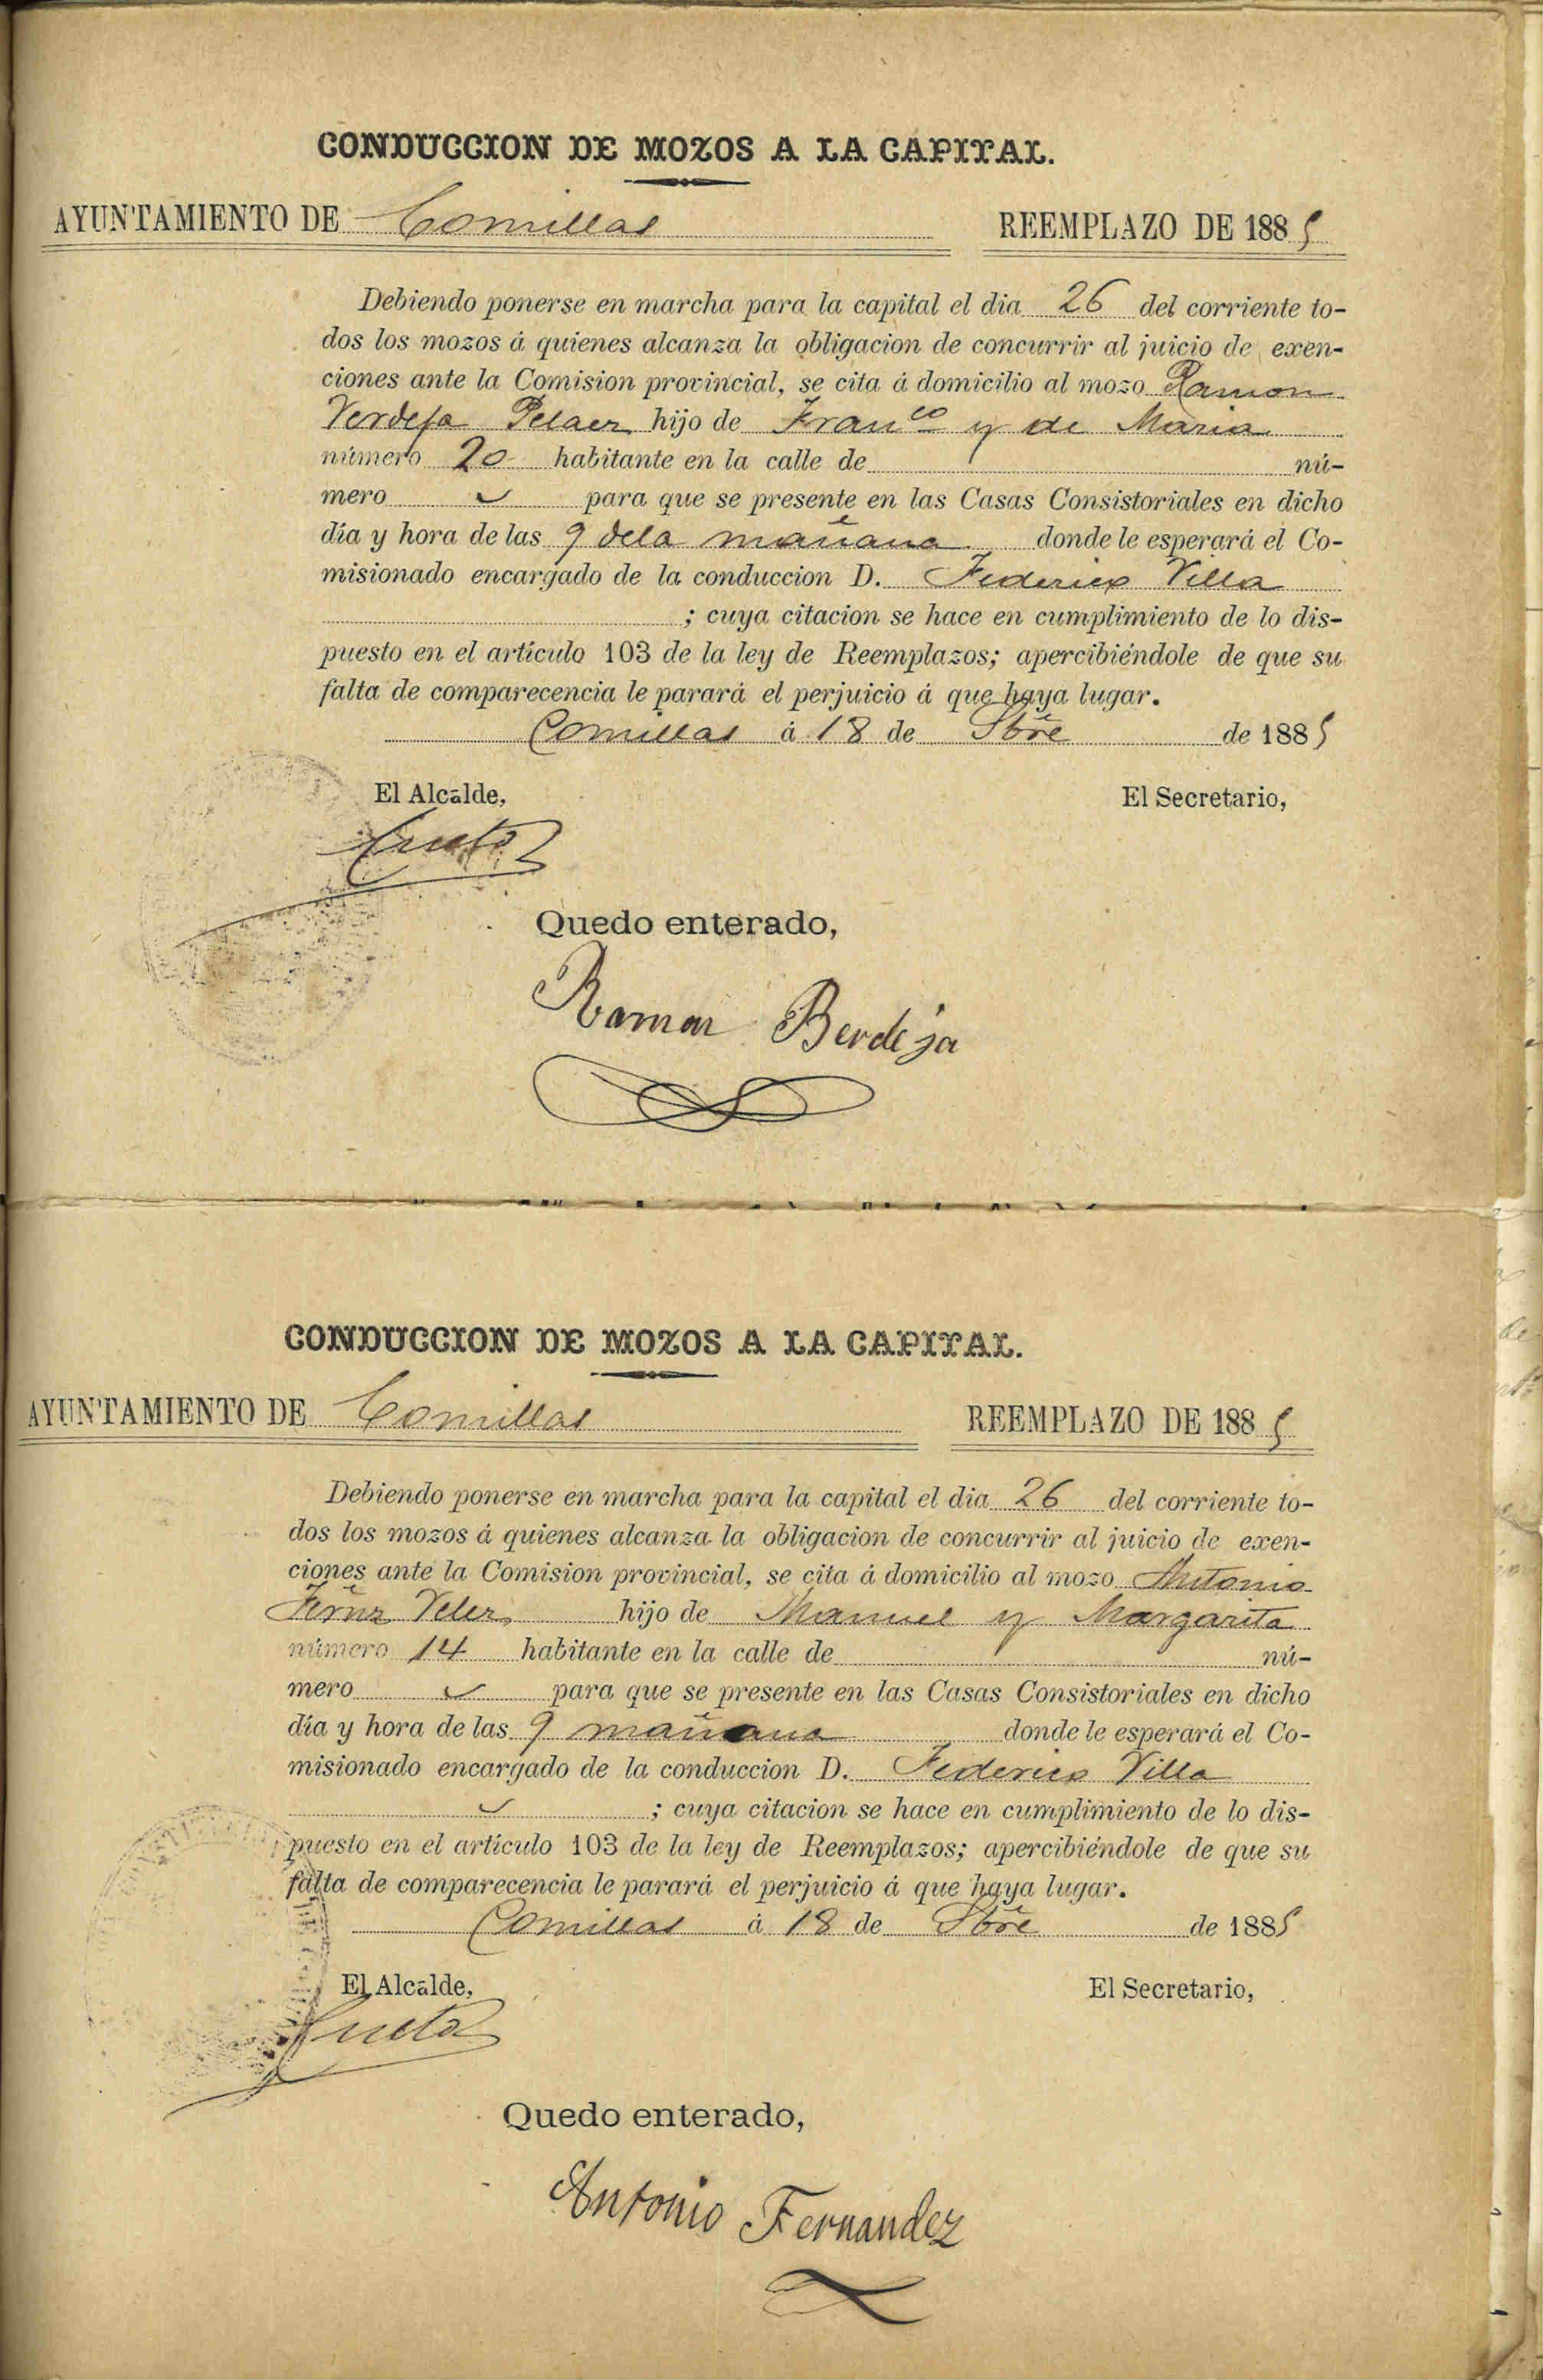 CONDUCCION DE MOZOS A LA CAPITAL.
AYUNTAMIENTO DE Comillas REEMPLAZO DE 1885
Debiendo ponerse en marcha para la capital el dia 26 del corriente to-
dos los mozos á quienes alcanza la obligacion de concurrir al juicio de exen-
ciones ante la Comision provincial, se cita á domicilio al mozo Ramon
Verdeja Pelaez hijo de Fran.co y de Maria
número 20 habitante en la calle de nú-
mero para que se presente en las Casas Consistoriales en dicho
día y hora de las 9 dela mañana donde le esperará el Co-
misionado encargado de la conduccion D. Federico Villa
; cuya citacion se hace en cumplimiento de lo dis-
puesto en el artículo 103 de la ley de Reemplazos; apercibiéndole de que su
falta de comparecencia le parará el perjuicio á que haya lugar.
Comillas á 18 de de 1885
El Alcalde, El Secretario,
Cueto
Quedo enterado,
Ramon Berdeja
CONDUCCION DE MOZOS A LA CAPITAL.
AYUNTAMIENTO DE Comillas REEMPLAZO DE 1885
Debiendo ponerse en marcha para la capital el dia 26 del corriente to-
dos los mozos á quienes alcanza la obligacion de concurrir al juicio de exen-
ciones ante la Comision provincial, se cita á domicilio al mozo Antonio
Fernz Velez hijo de Manuel y Margarita
número 14 habitante en la calle de nú-
mero para que se presente en las Casas Consistoriales en dicho
día y hora de las 9 mañana donde le esperará el Co-
misionado encargado de la conduccion D. Federico Villa
; cuya citacion se hace en cumplimiento de lo dis-
puesto en el artículo 103 de la ley de Reemplazos; apercibiéndole de que su
falta de comparecencia le parará el perjuicio á que haya lugar.
Comillas á 18 de de 1885
El Alcalde, El Secretario,
Cueto
Quedo enterado,
Antonio Fernandez